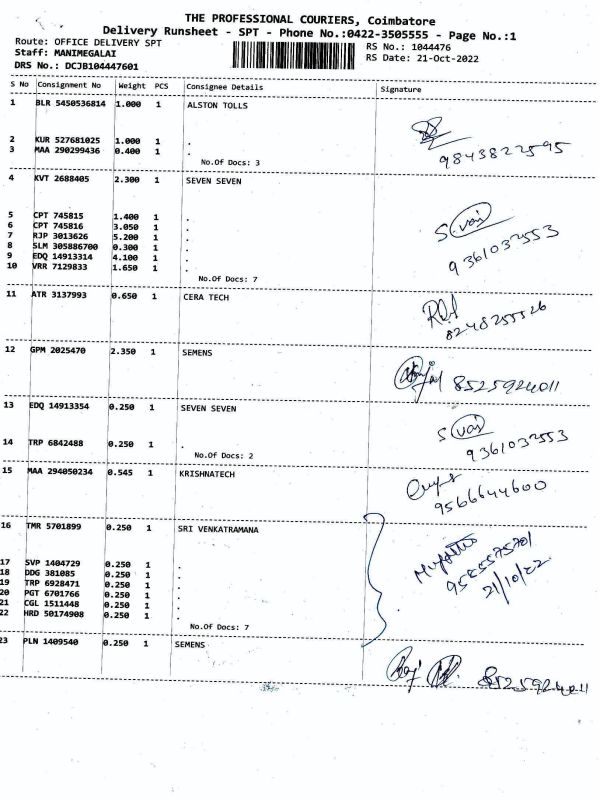 THE PROFESSIONAL COURIERS, Coimbatore
Delivery Runsheet - SPT - Phone No.:0422-3505555 - Page No.:1
Route: OFFICE DELIVERY SPT
Staff: MANIMEGALAI
DRS No.: DCJB104447601
RS No.: 1044476
RS Date: 21-Oct-2022
S No Consignment No Weight PCS Consignee Details Signature
1 BLR 5450536814 1.000 1 ALSTON TOLLS
2 KUR 527681025 1.000 1 .
3 MAA 290299436 0.400 1 .
No.Of Docs: 3
9843822595
4 KVT 2688405 2.300 1 SEVEN SEVEN
5 CPT 745815 1.400 1 .
6 CPT 745816 3.050 1 .
7 RJP 3013626 5.200 1 .
8 SLM 305886700 0.300 1 .
9 EDQ 14913314 4.100 1 .
10 VRR 7129833 1.650 1 .
No.Of Docs: 7
9361032553
11 ATR 3137993 0.650 1 CERA TECH
8248255526
12 GPM 2025470 2.350 1 SEMENS
8525924011
13 EDQ 14913354 0.250 1 SEVEN SEVEN
14 TRP 6842488 0.250 1 .
No.Of Docs: 2
9361032553
15 MAA 294050234 0.545 1 KRISHNATECH
9566644600
16 TMR 5701899 0.250 1 SRI VENKATRAMANA
17 SVP 1404729 0.250 1 .
18 DDG 381085 0.250 1 .
19 TRP 6928471 0.250 1 .
20 PGT 6701766 0.250 1 .
21 CGL 1511448 0.250 1 .
22 HRD 50174908 0.250 1 .
No.Of Docs: 7
9585575701
21/10/22
23 PLN 1409540 0.250 1 SEMENS
8525924011